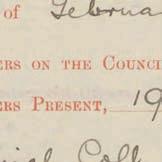 of Februa
ERS ON THE COUNCI
ERS PRESENT, 19
Coll